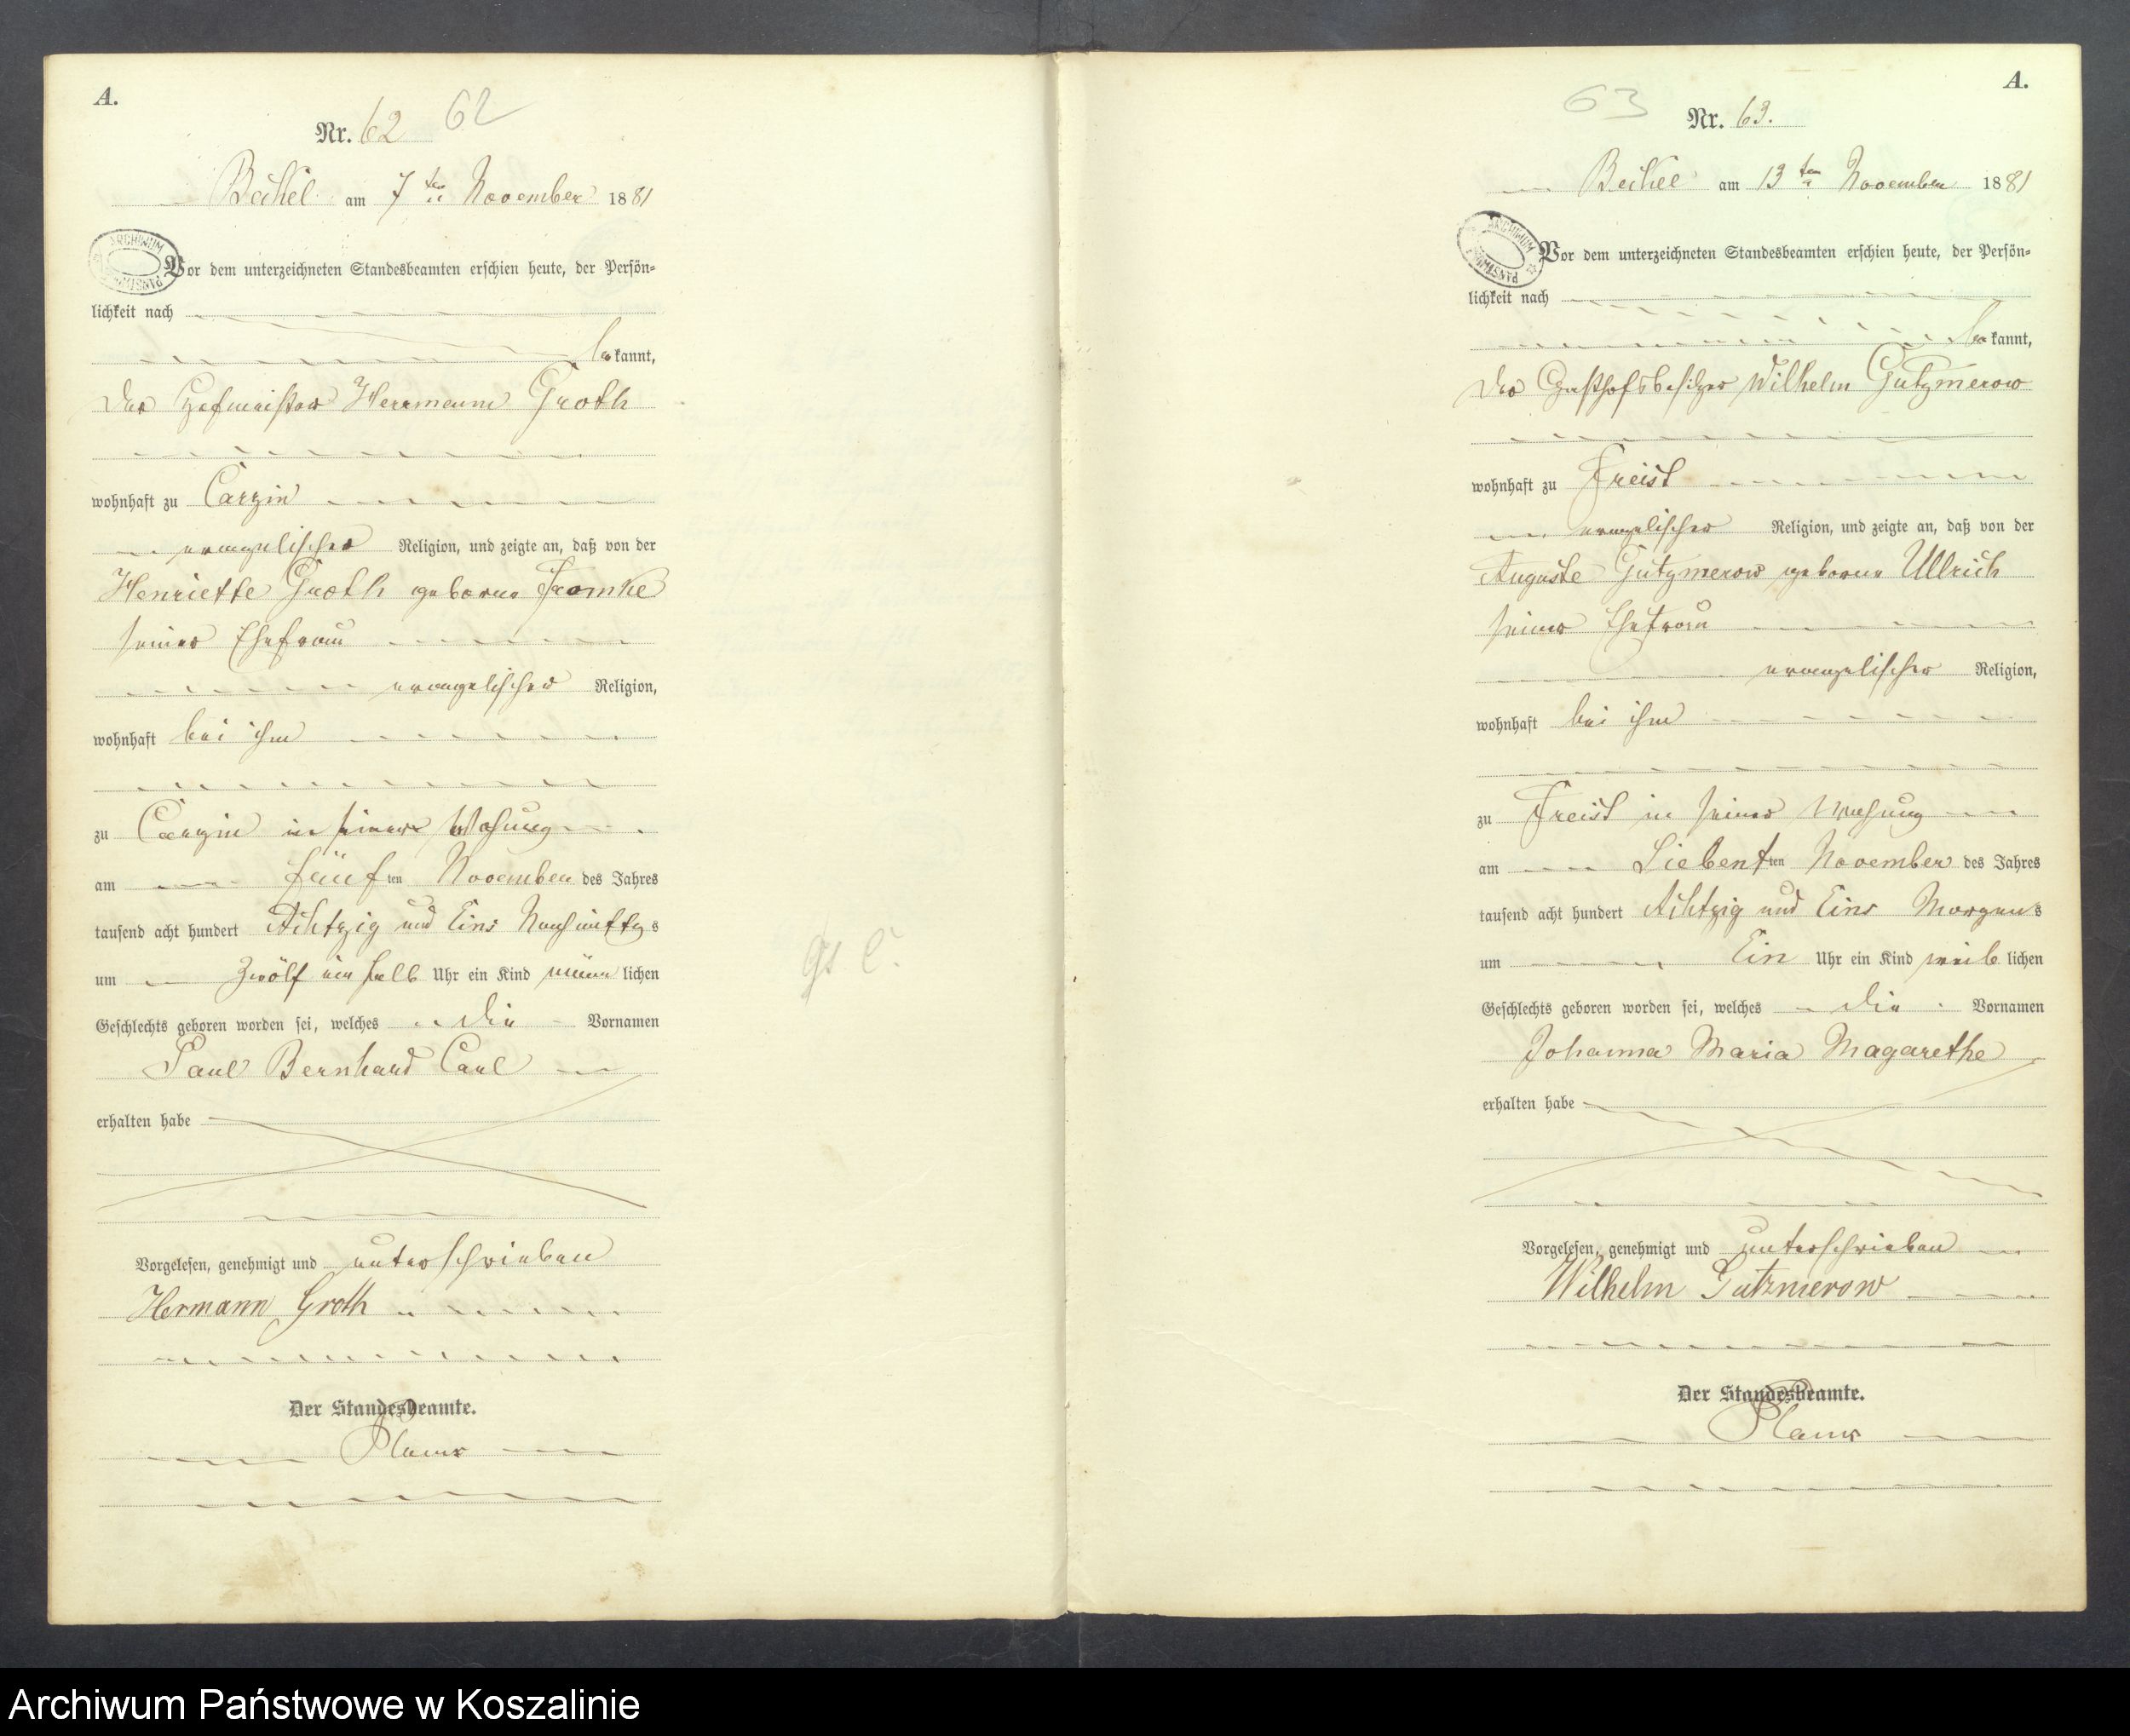 A.
Nr. 62 62
Beckel am 7ten November 1881
ARCHIWUM
Vor dem unterzeichneten Standesbeamten erschien heute, der Persön-
lichkeit nach
bekannt,
der Hofmeister Herrmann Groth
wohnhaft zu Carzin
evangelischer Religion, und zeigte an, daß von der
Henriette Groth geborne Framke
seiner Ehefrau
evangelischer Religion,
wohnhaft bei ihm
zu Carzin in seiner Wohung
am fünften November des Jahres
tausend acht hundert Achtzig und Eins Nachmittgs
um Zwölf ein halb Uhr ein Kind männlichen
Geschlechts geboren worden sei, welches die Vornamen
Paul Bernhard Carl
erhalten habe
Vorgelesen, genehmigt und unterschrieben
Hermann Groth
Der Standesbeamte.
A.
63 Nr. 63.
Beckel am 13ten November 1881
ARCHIWUM
Vor dem unterzeichneten Standesbeamten erschien heute, der Persön-
lichkeit nach
bekannt,
der Gasthofsbesitzer Wilhelm Gutzmerow
wohnhaft zu Freist
evangelischer Religion, und zeigte an, daß von der
Auguste Gutzmerow geborne Ullrich
seiner Ehefrau
evangelischer Religion,
wohnhaft bei ihm
zu Freist in seiner Wohung
am Siebenten November des Jahres
tausend acht hundert Achtzig und Eins Morgens
um Ein Uhr ein Kind weiblichen
Geschlechts geboren worden sei, welches die Vornamen
Johanna Maria Magarethe
erhalten habe
Vorgelesen, genehmigt und unterschrieben
Wilhelm Gutzmerow
Der Standesbeamte.
Archiwum Państwowe w Koszalinie